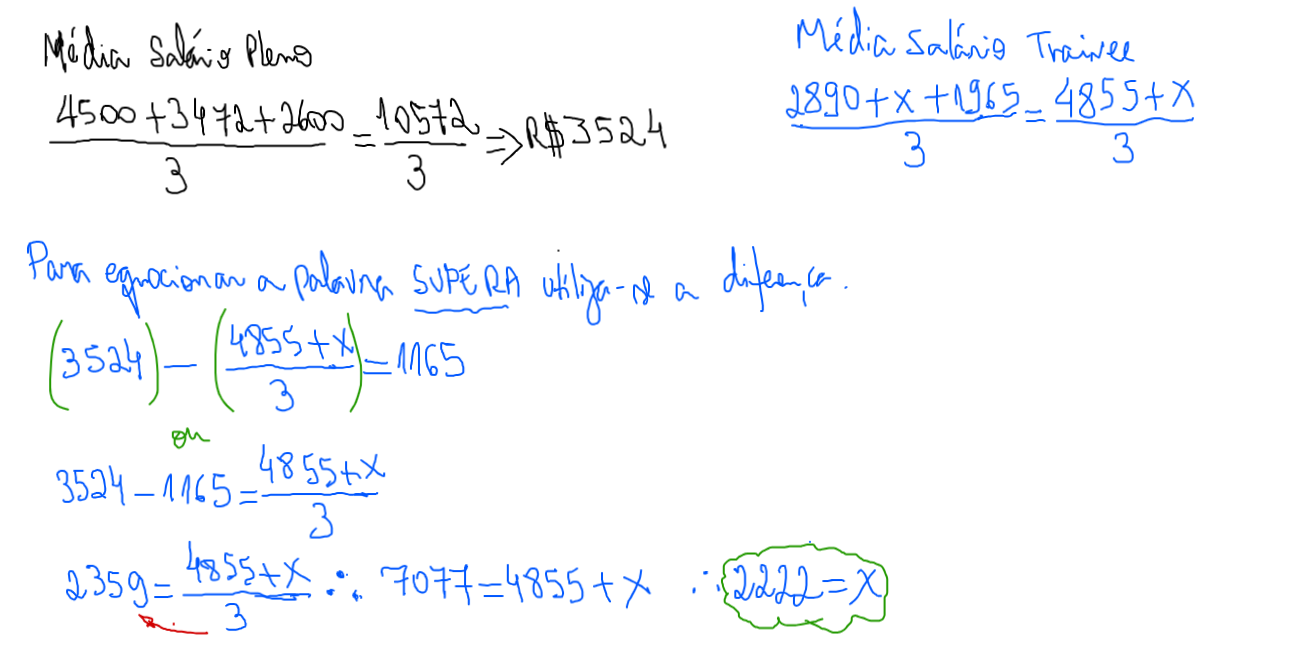 Média Salário Pleno
(4500+3472+2600)/3 = 10572/3 => R$3524
Média Salário Trainee
(2890+x+1965)/3 = (4855+x)/3
Para equacionar a palavra SUPERA utiliza-se a diferença.
(3524) - ((4855+x)/3) = 1165
ou
3524-1165 = (4855+x)/3
2359 = (4855+x)/3 ∴ 7077=4855+x ∴ 2222=x